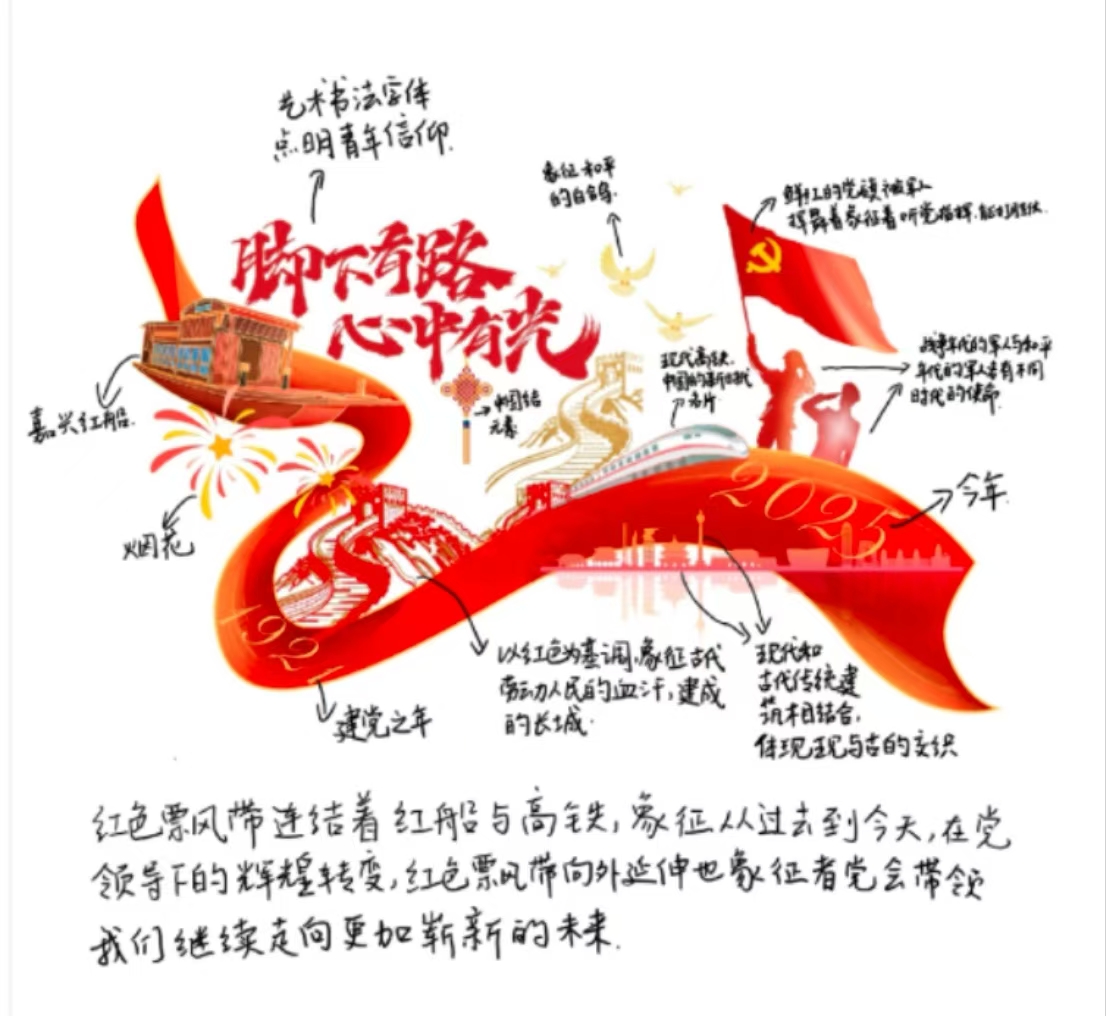 艺术书法字体
点明青年信仰.
象征和平
的白鸽.
鲜红的党旗被军人
挥舞着象征着听党指挥.能打胜仗.
脚下有路
心中有光
现代高铁.
中国的新
名片
战争年代的军人与和平
年代的军人各有不同
时代的使命.
嘉兴红船.
中国结
元素.
烟花
2025
今年.
192
建党之年
以红色为基调,象征古代
劳动人民的血汗,建成
的长城.
现代和
古代传统建
筑相结合,
体现现与古的交织
红色飘带连结着红船与高铁,象征从过去到今天,在党
领导下的辉煌转变,红色飘带向外延伸也象征着党会带领
我们继续走向更加崭新的未来.